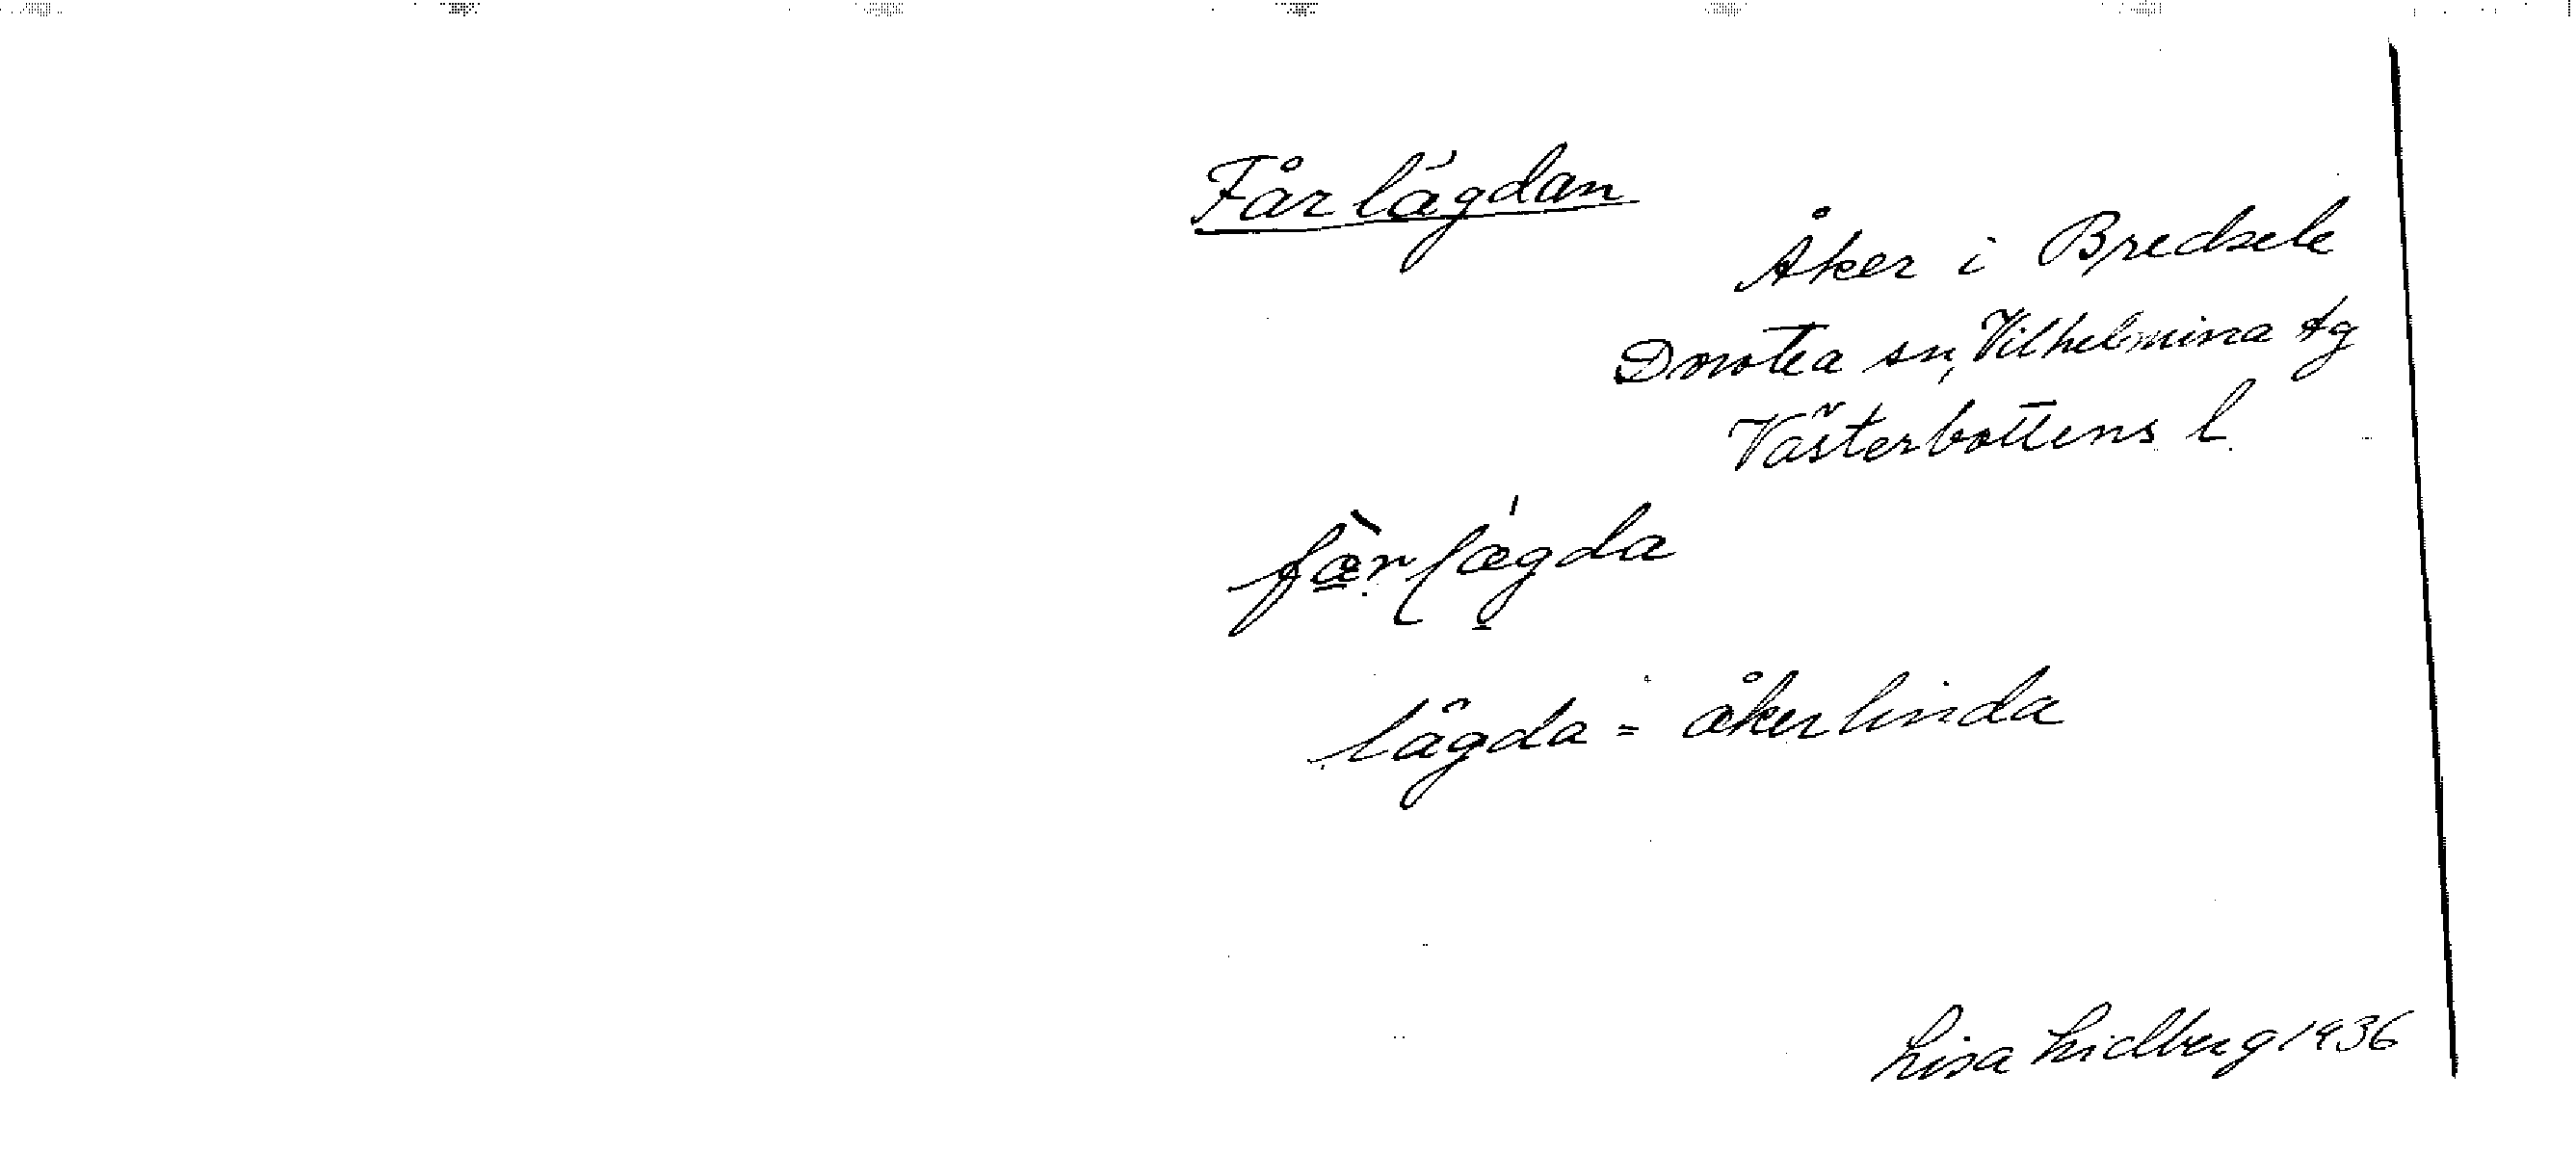 Fårlägdan
Åker i Bredsele
Dorotea sn, Vilhelmina tg
Västerbottens l.
fæ̀rlǽgda
lägda = åkerlinda
Lisa Lidberg 1936